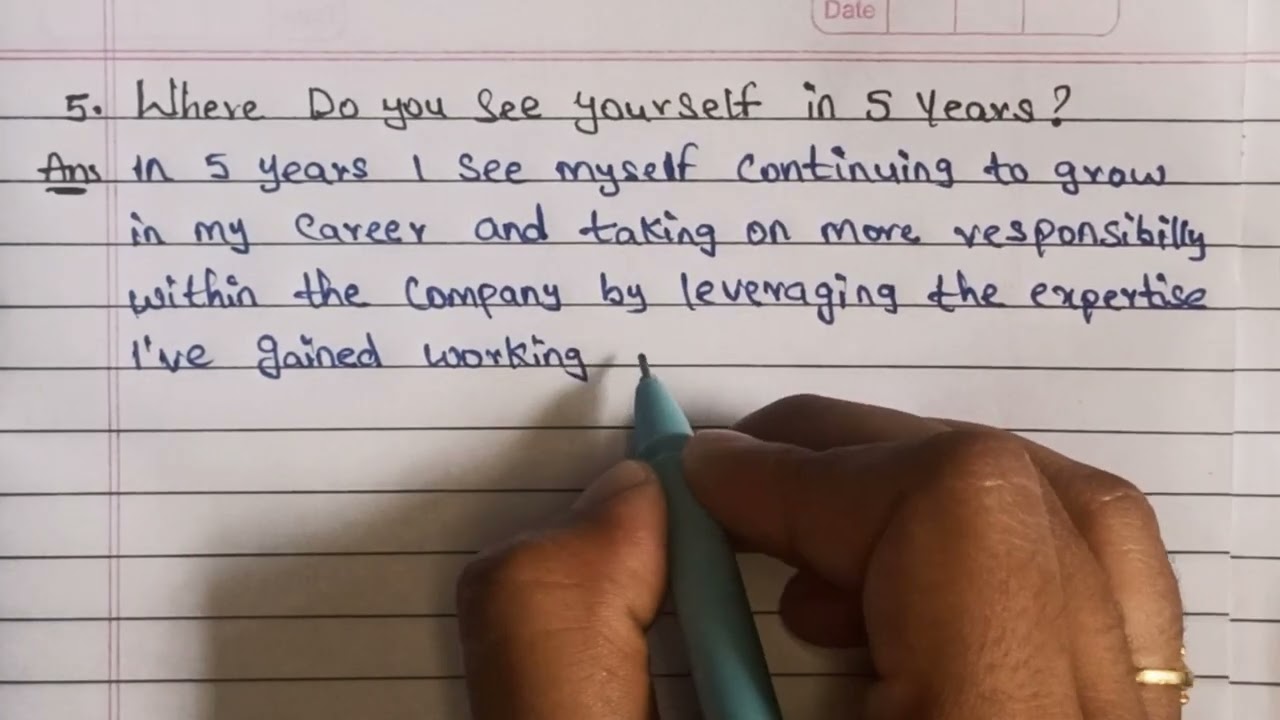 Date
5. Where Do you see yourself in 5 Years?
Ans In 5 years I see myself continuing to grow
in my career and taking on more responsibilly
within the company by leveraging the expertise
I've gained working